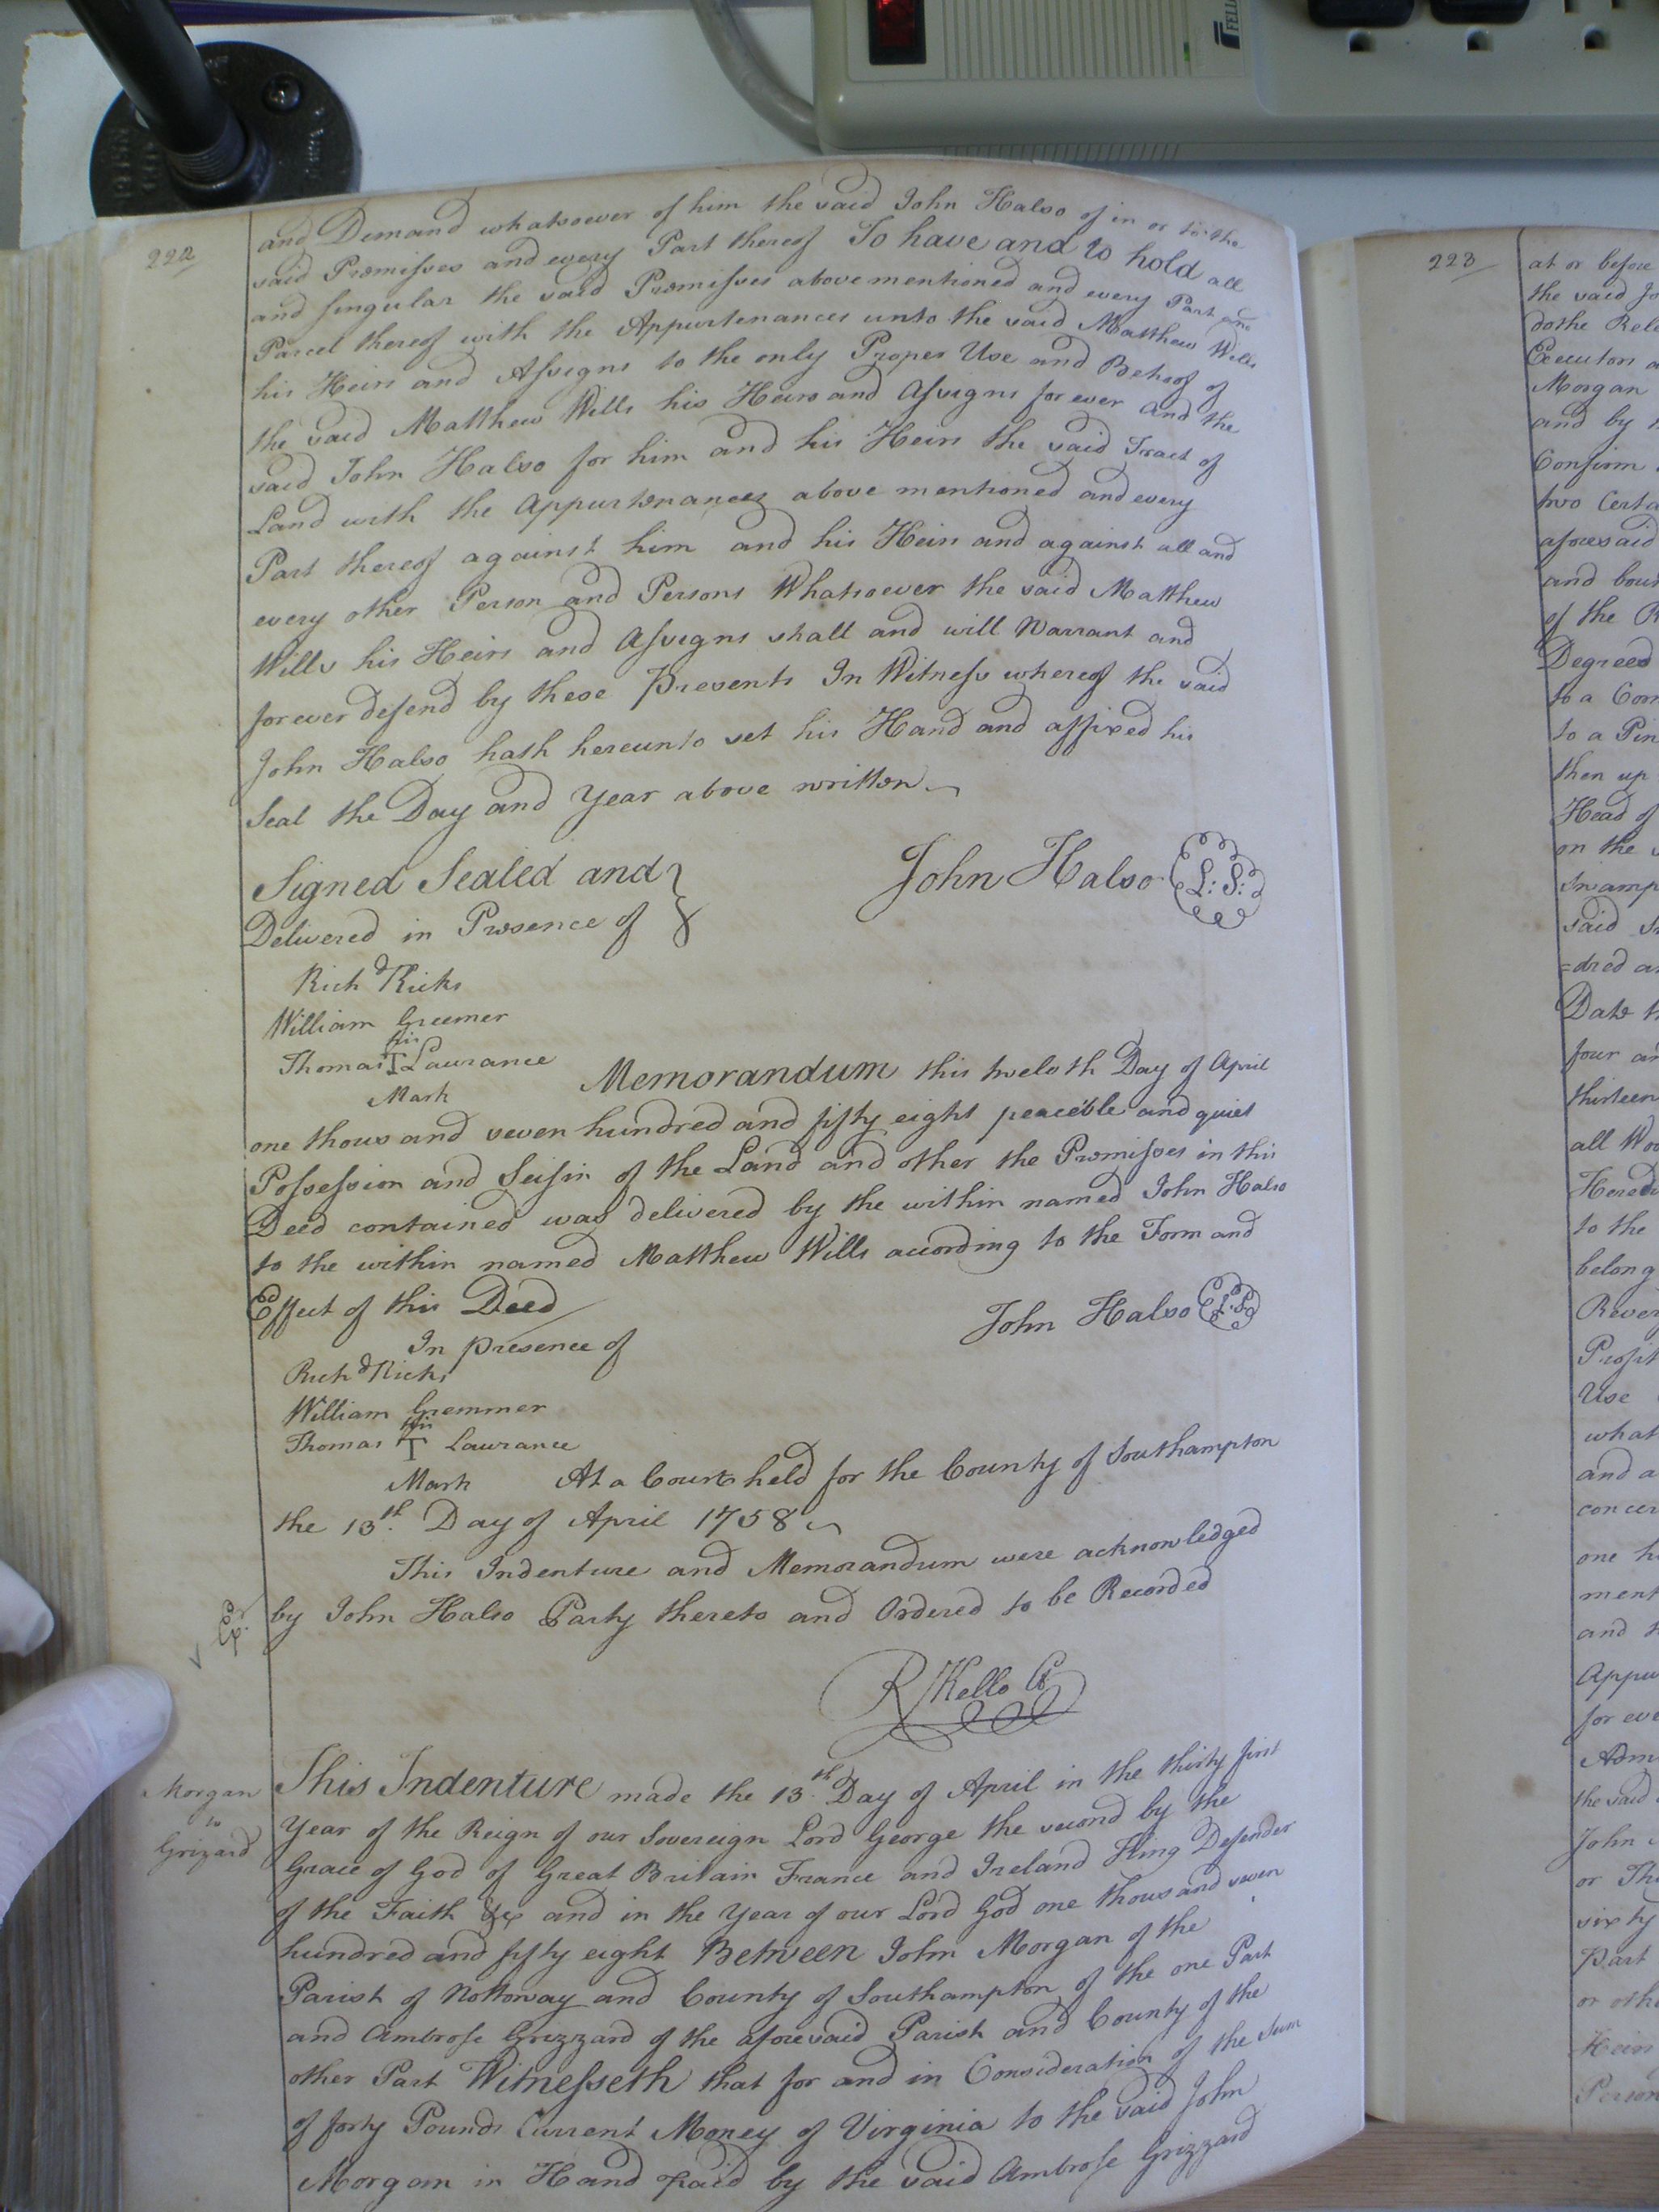 222
and Demand whatsoever of him the said John Halso of in or to the
said Premisses and every Part thereof To have and to hold all
and singular the said Premisses above mentioned and every Part and
Parcel thereof with the Appurtenances unto the said Matthew Wills
his Heirs and Assigns to the only Proper Use and Behoof of
the said Matthew Wills his Heirs and Assigns for ever and the
said John Halso for him and his Heirs the said Tract of
Land with the Appurtenances above mentioned and every
Part thereof against him and his Heirs and against all and
every other Person and Persons Whatsoever the said Matthew
Wills his Heirs and Assigns shall and will Warrant and
forever defend by these Presents In Witness whereof the said
John Halso hath hereunto set his Hand and affixed his
Seal the Day and Year above written
Signed Sealed and John Halso L:S:
Delivered in Presence of
Richd Ricks
William Greemer
his
Thomas T Laurance
Mark Memorandum this twelvth Day of April
one thousand seven hundred and fifty eight peaceble and quiet
Possession and Seisin of the Land and other the Premisses in this
Deed contained was delivered by the within named John Halso
to the within named Matthew Wills acording to the Form and
Effect of this Deed
In presence of John Halso L.S.
Richd Ricks
William Gremmer
his
Thomas T Laurance
Mark At a Court held for the County of Southampton
the 13th. Day of April 1758
This Indenture and Memorandum were acknowledged
by John Halso Party thereto and Ordered to be Recorded
Ex.
R Kello Ct
Morgan
to
Grizard
This Indenture made the 13th. Day of April in the thirty first
Year of the Reign of our Sovereign Lord George the second by the
Grace of God of Great Britain France and Ireland King Defender
of the Faith &c and in the Year of our Lord God one thousand seven
hundred and fifty eight Between John Morgan of the
Parish of Nottoway and County of Southampton of the one Part
and Ambrose Grizzard of the aforesaid Parish and County of the
other Part Witnesseth that for and in Consideration of the Sum
of forty Pounds Current Money of Virginia to the said John
Morgan in Hand paid by the said Ambrose Grizzard
223
at or before
the said Jo
dothe Rele
Executors a
Morgan
and by
Confirm
two Certa
aforesaid
and bou
of the R
Degrees
to a Corn
to a Pin
then up
Head of
on the
Swamp
said S
=dred a
Date
four an
thirteen
all Woo
Heredi
to the
belong
Rever
Profit
Use
what
and a
concer
one h
ment
and
Appu
for eve
Admi
the said
John
or Th
sixty
Part
or othe
Heirs
Person